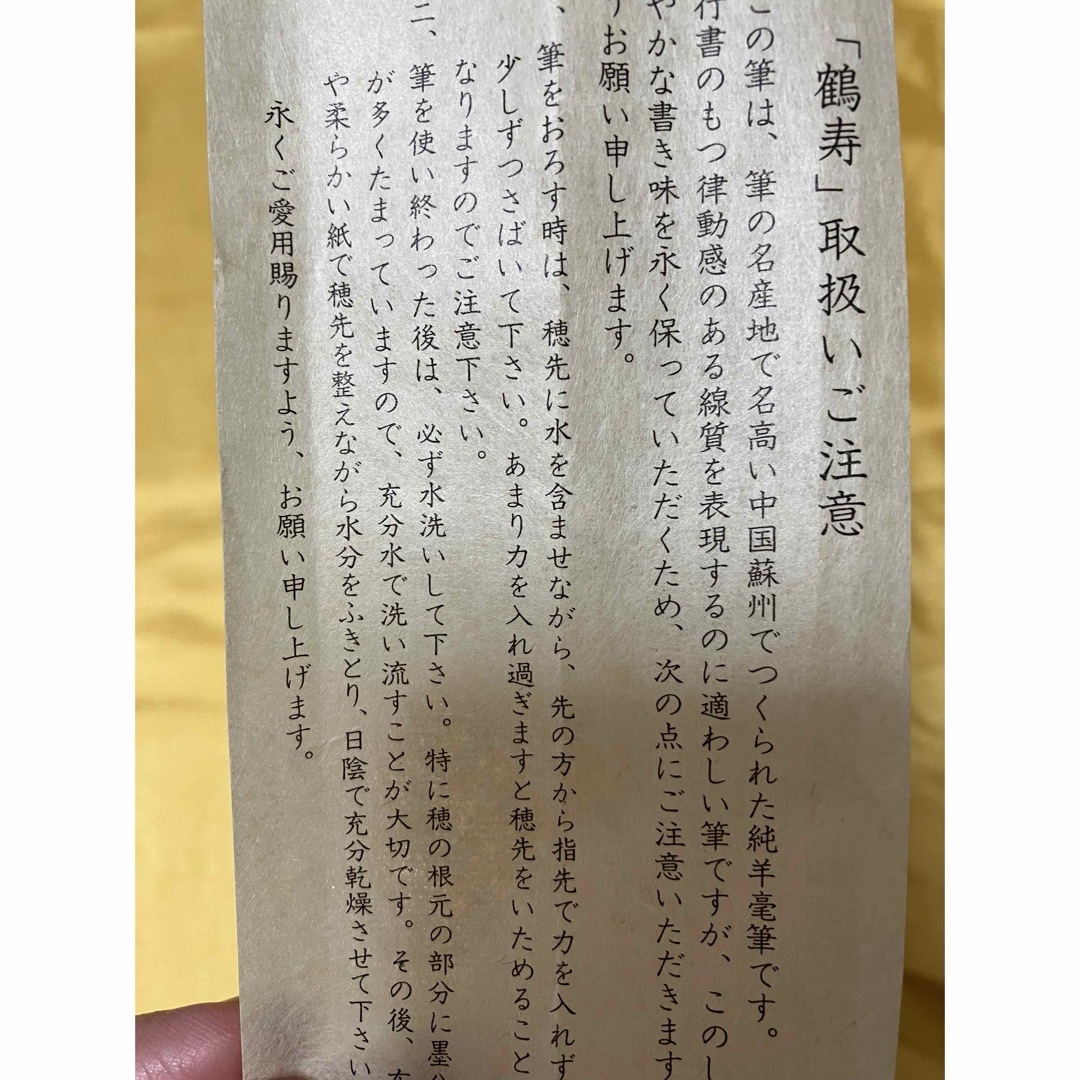 「鶴寿」取扱いご注意
この筆は、筆の名産地で名高い中国蘇州でつくられた純羊毫筆です。
行書のもつ律動感のある線質を表現するのに適わしい筆ですが、このし
やかな書き味を永く保っていただくため、次の点にご注意いただきます
うお願い申し上げます。
、筆をおろす時は、穂先に水を含ませながら、先の方から指先で力を入れず
少しずつさばいて下さい。あまり力を入れ過ぎますと穂先をいためること
なりますのでご注意下さい。
二、筆を使い終わった後は、必ず水洗いして下さい。特に穂の根元の部分に墨
が多くたまっていますので、充分水で洗い流すことが大切です。その後、
や柔らかい紙で穂先を整えながら水分をふきとり、日陰で充分乾燥させて下さい
永くご愛用賜りますよう、お願い申し上げます。